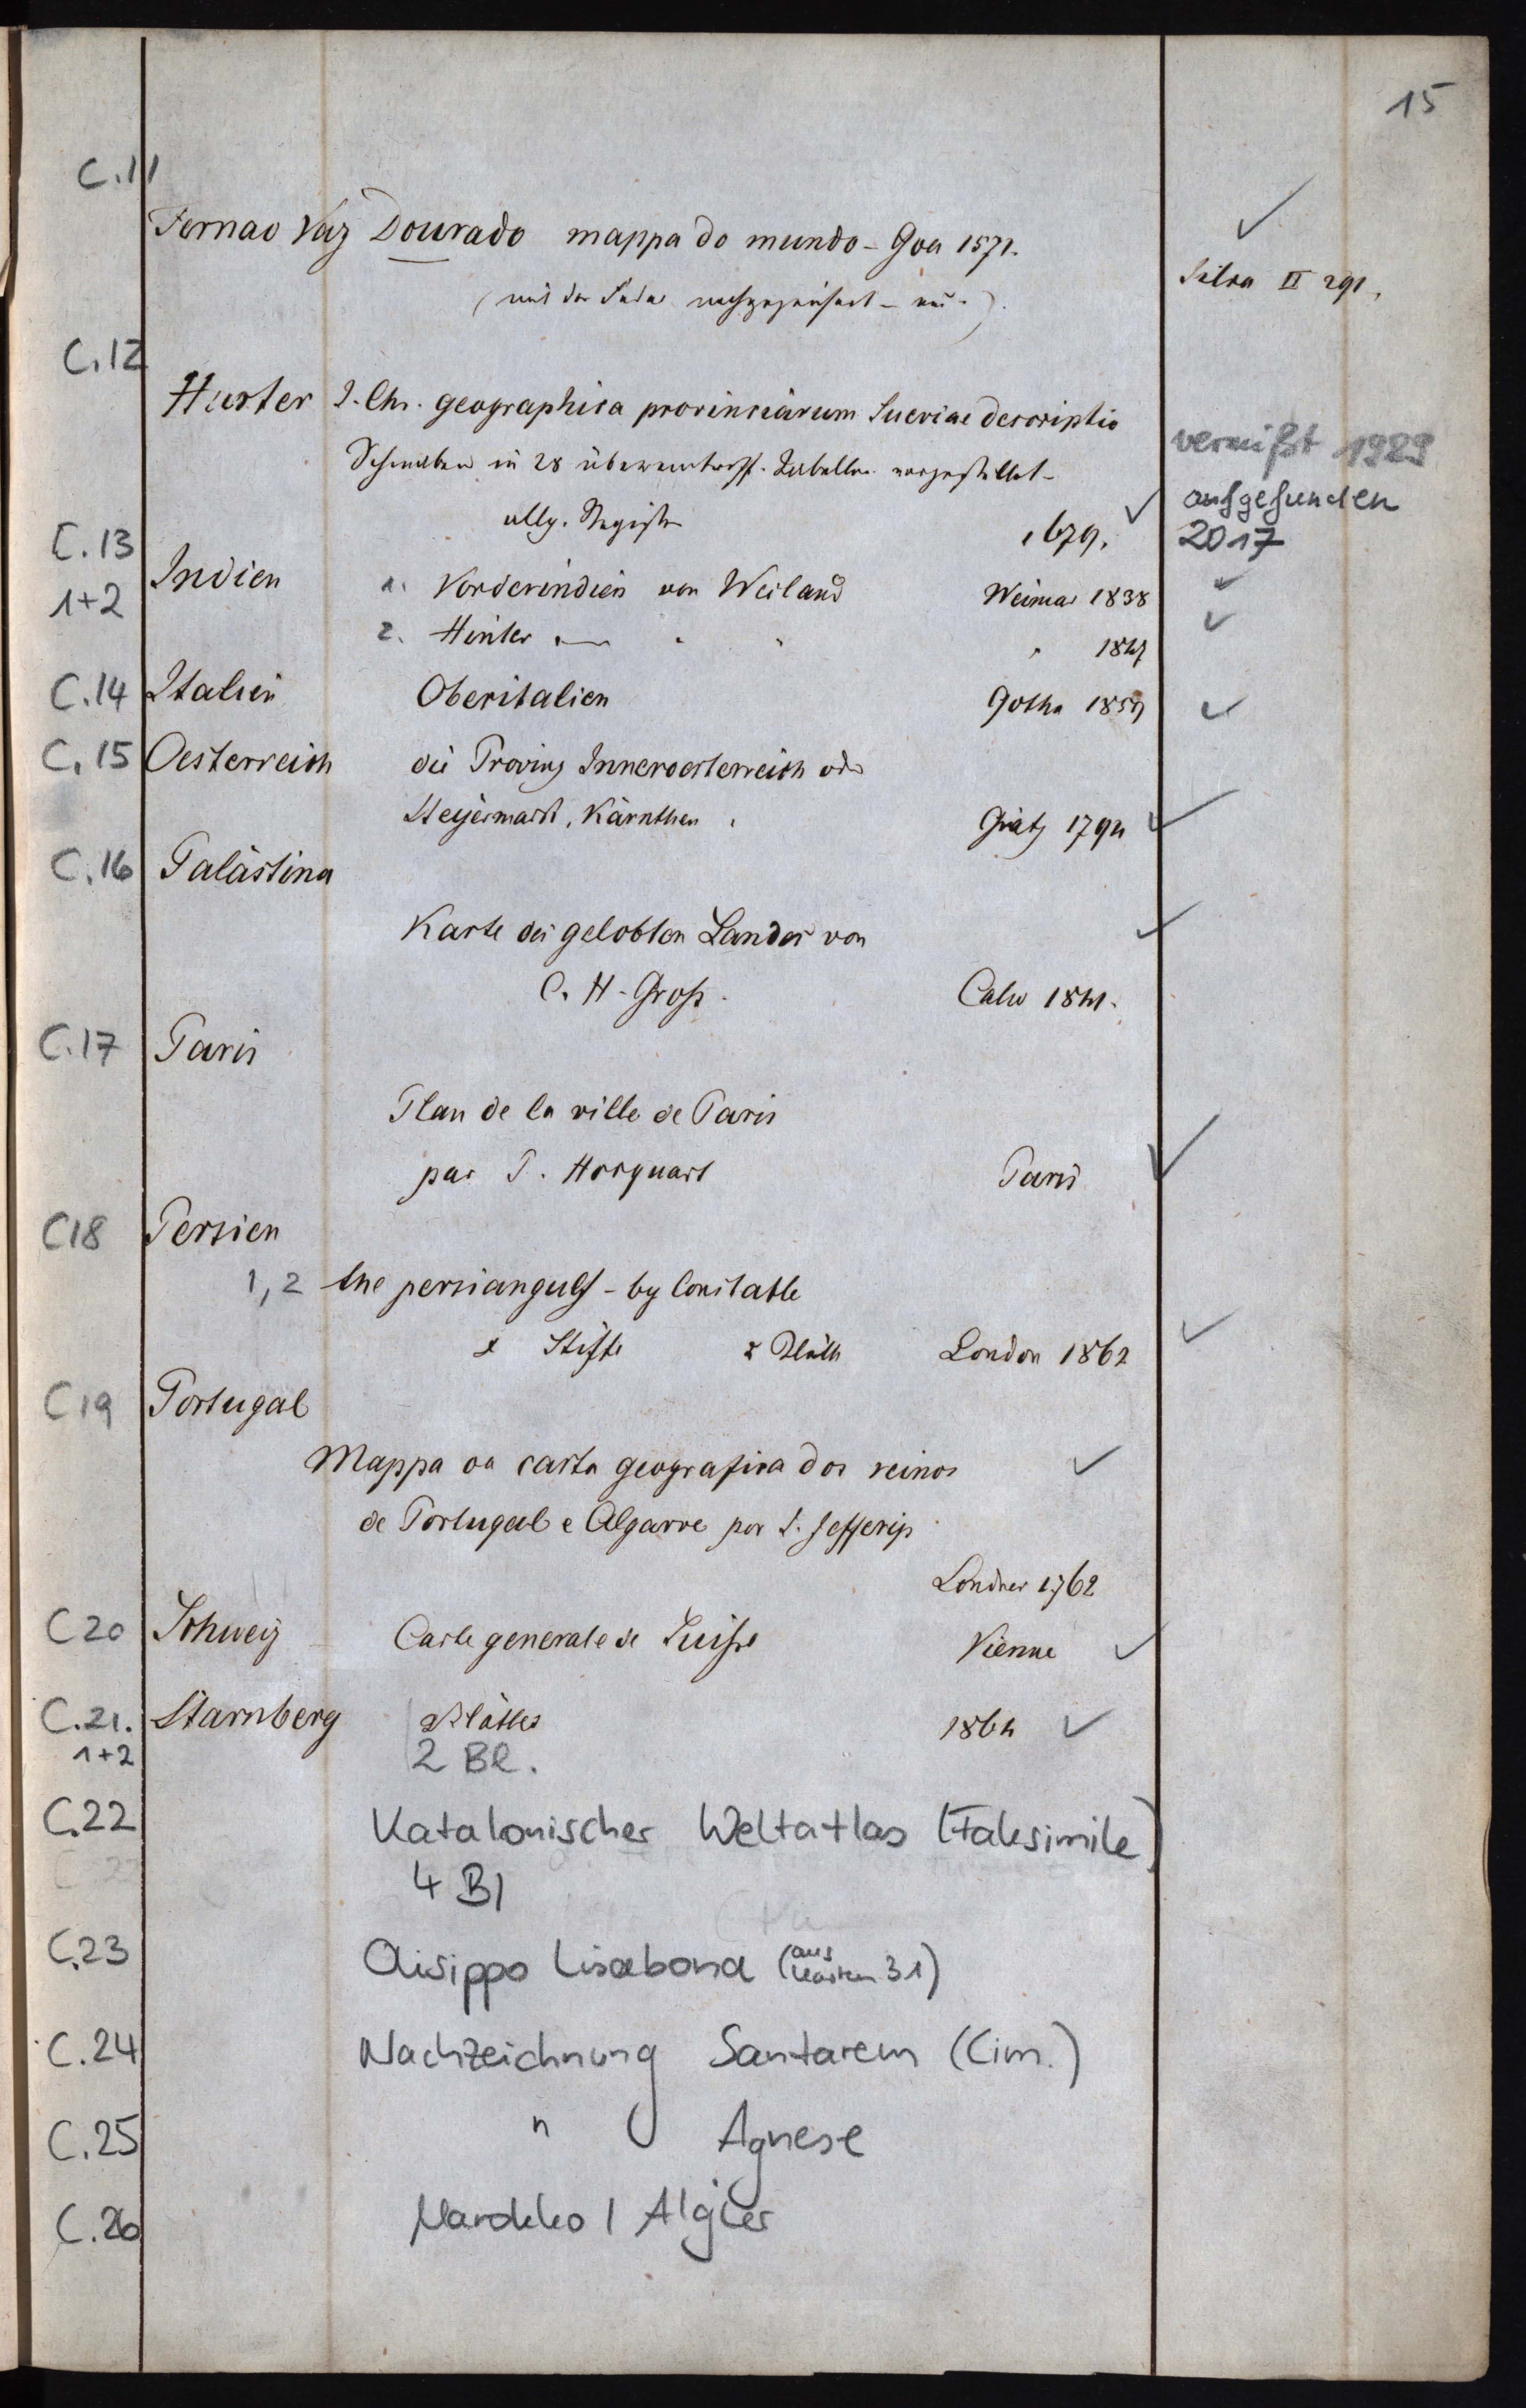 15
C.11
Fernao Vaz Dourado mappa do mundo - Goa 1571. ✓
(mit der Feder nachgezeichnet - ). Silva II 291.
C.12
Hurter J. Chr. geographica provinciarum Sueviae descriptio
Schwaben in 28 Tabellen vorgestellt - vermißt 1929
allg. Register 1679. ✓ aufgefunden 2017
C.13
1+2
Indien 1. Vorderindien von Weiland Weimar 1838 ✓
2. Hinter — " " " 1847 ✓
C.14 Italien Oberitalien Gotha 1859 ✓
C.15 Oesterreich die Provinz Inneroesterreich oder
Steyermark, Kärnthen Grätz 1794 ✓
C.16 Palästina
Karte des gelobten Landes von ✓
C. H. Groß. Calw 1841.
C.17 Paris
Plan de la ville de Paris
par P. Hocquart Paris ✓
C18 Persien
1,2 the persiangulf - by Constable
& Stiffe 2 Blätt London 1862 ✓
C19 Portugal
Mappa ou carta geografica dos reinos ✓
de Portugal e Algarve por J. Jefferip
Londres 1762
C20 Schweiz Carte generale de Suisse Vienne ✓
C.21. Starnberg 2 Blätter 1864 ✓
1+2 2 Bl.
C.22 Katalonischer Weltatlas (Faksimile)
4 Bl
C.23 Olisippo Lisabona (aus Kasten 31)
C.24 Nachzeichnung Santarem (Cim.)
C.25 " Agnese
C.26 Marokko / Algier